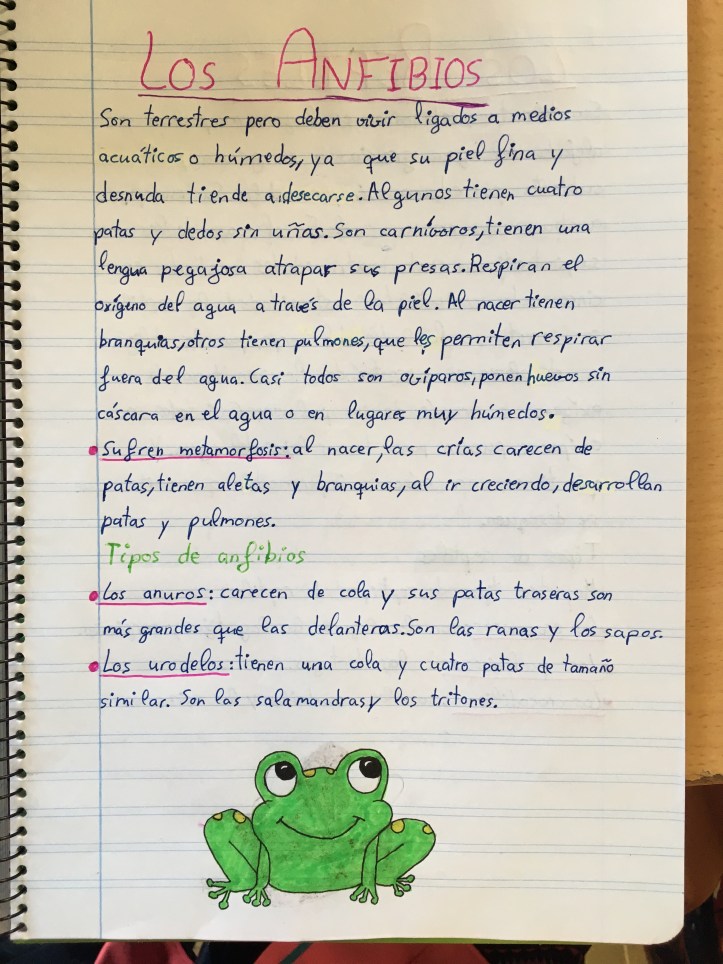 Los Anfibios
Son terrestres pero deben vivir ligados a medios
acuáticos o húmedos, ya que su piel fina y
desnuda tiende a desecarse. Algunos tienen cuatro
patas y dedos sin uñas. Son carnívoros, tienen una
lengua pegajosa atrapar sus presas. Respiran el
oxígeno del agua a través de la piel. Al nacer tienen
branquias, otros tienen pulmones, que les permiten respirar
fuera del agua. Casi todos son ovíparos, ponen huevos sin
cáscara en el agua o en lugares muy húmedos.
Sufren metamorfosis: al nacer, las crías carecen de
patas, tienen aletas y branquias, al ir creciendo, desarrollan
patas y pulmones.
Tipos de anfibios
Los anuros: carecen de cola y sus patas traseras son
más grandes que las delanteras. Son las ranas y los sapos.
Los urodelos: tienen una cola y cuatro patas de tamaño
similar. Son las salamandras y los tritones.